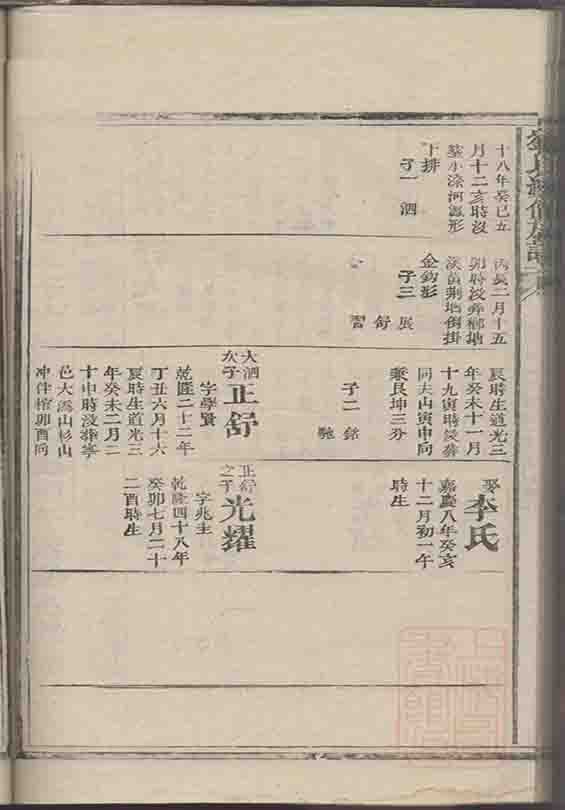 十八年癸巳五
月十二亥時沒
葬小淦河鳳形
十排
子一 泗
丙辰二月十五
卯時沒葬鄉地
黃荊地倒掛
金鈎形
子三
展
舒
習
辰時生道光三
年癸未十一月
十九寅時沒葬
同夫山寅申向
兼艮坤三分
子二 銘
馳
大泗
次子
正舒
字學賢
乾隆二十二年
丁丑六月十六
辰時生道光三
年癸未二月二
十申時沒葬寧
邑大溈山杉山
冲伴棺卯酉向
娶
李氏
嘉慶八年癸亥
十二月初一午
時生
正舒
之子
光耀
字兆圭
乾隆四十八年
癸卯七月二十
二酉時生